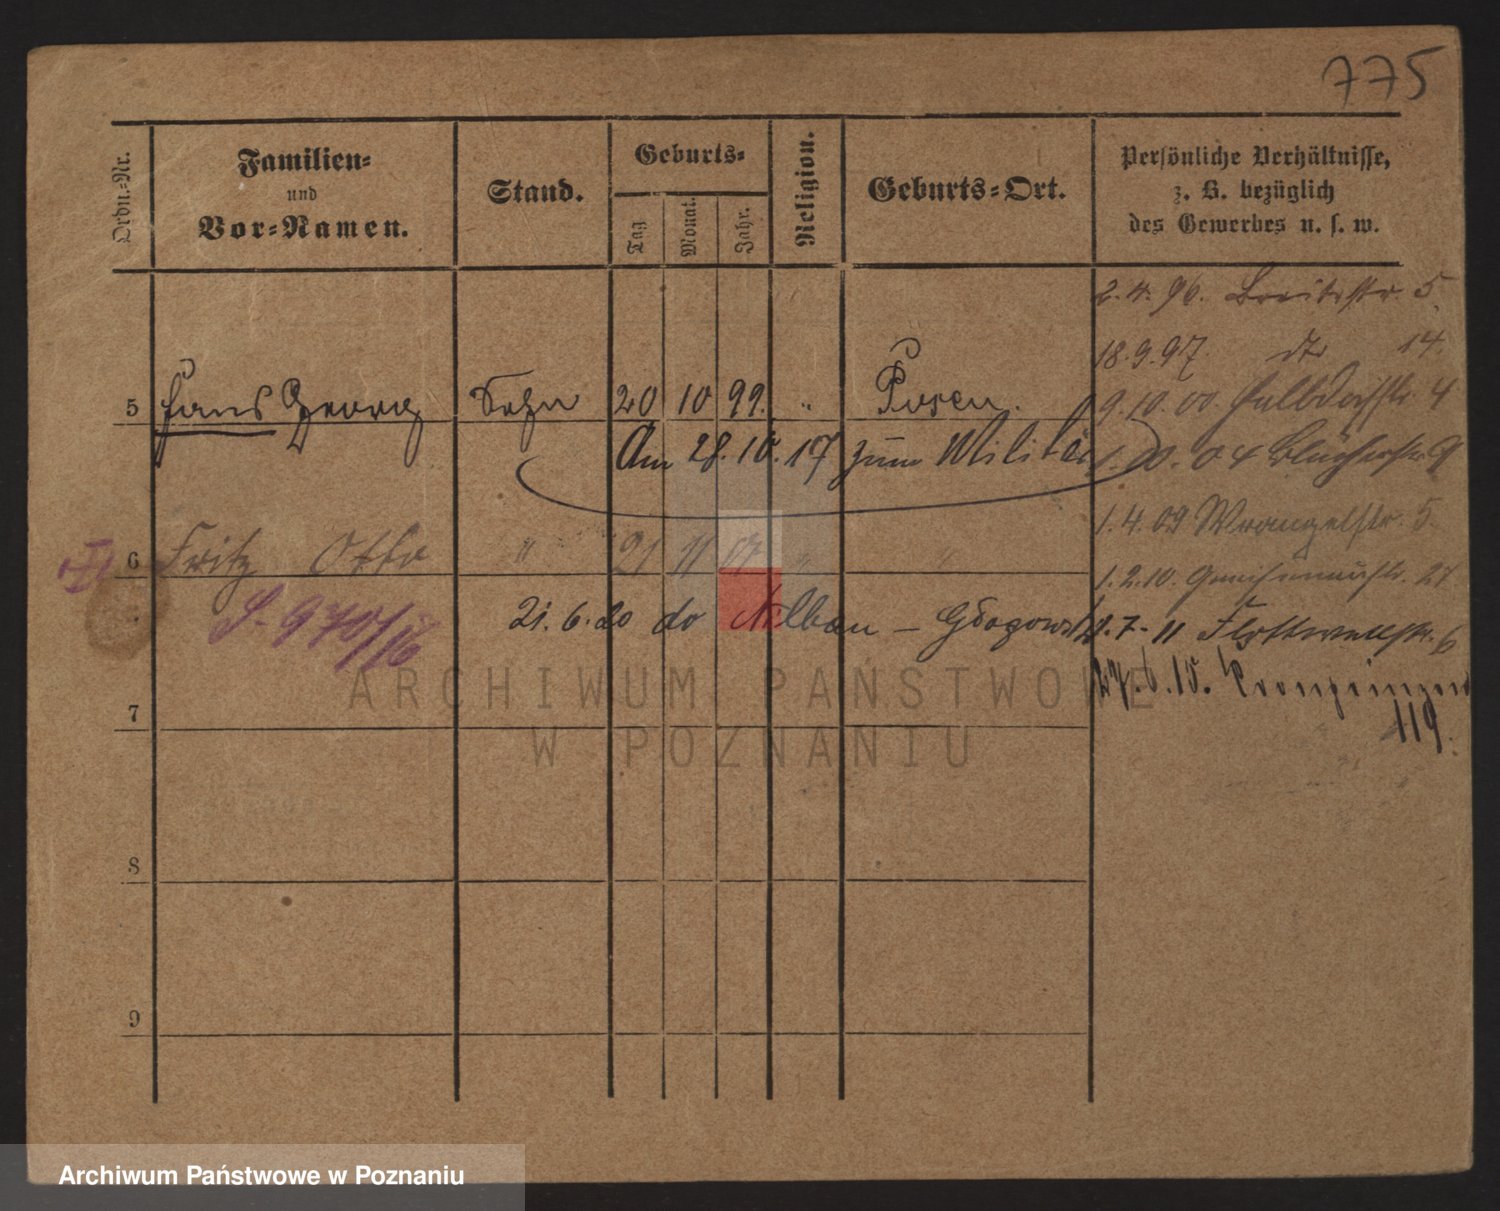 775
Ordn.-Nr.
Familien-
und
Vor-Namen.
Stand.
Geburts-
Tag
Monat.
Jahr.
Religion.
Geburts-Ort.
Persönliche Verhältnisse,
z. B. bezüglich
des Gewerbes u. s. w.
2.4.96. Breitestr. 5.
18.9.97. dto 14.
5 Hans Georg Sohn 20 10 99. " Posen.
9.10.00. Halbdorfstr. 4
Am 28.10.17 zum Militär
1.10.04 Blücherstr. 9
1.4.09 Wrangelstr. 5.
6 Fritz Otto " 21 11 07 " "
1.2.10. Gneisenaustr. 27
S-970/16
21.6.20 do
1.7.11 Flottwellstr. 6
27.6.15. Kronprinzen
119.
7
8
9
ARCHIWUM PAŃSTWOWE
W POZNANIU
Archiwum Państwowe w Poznaniu